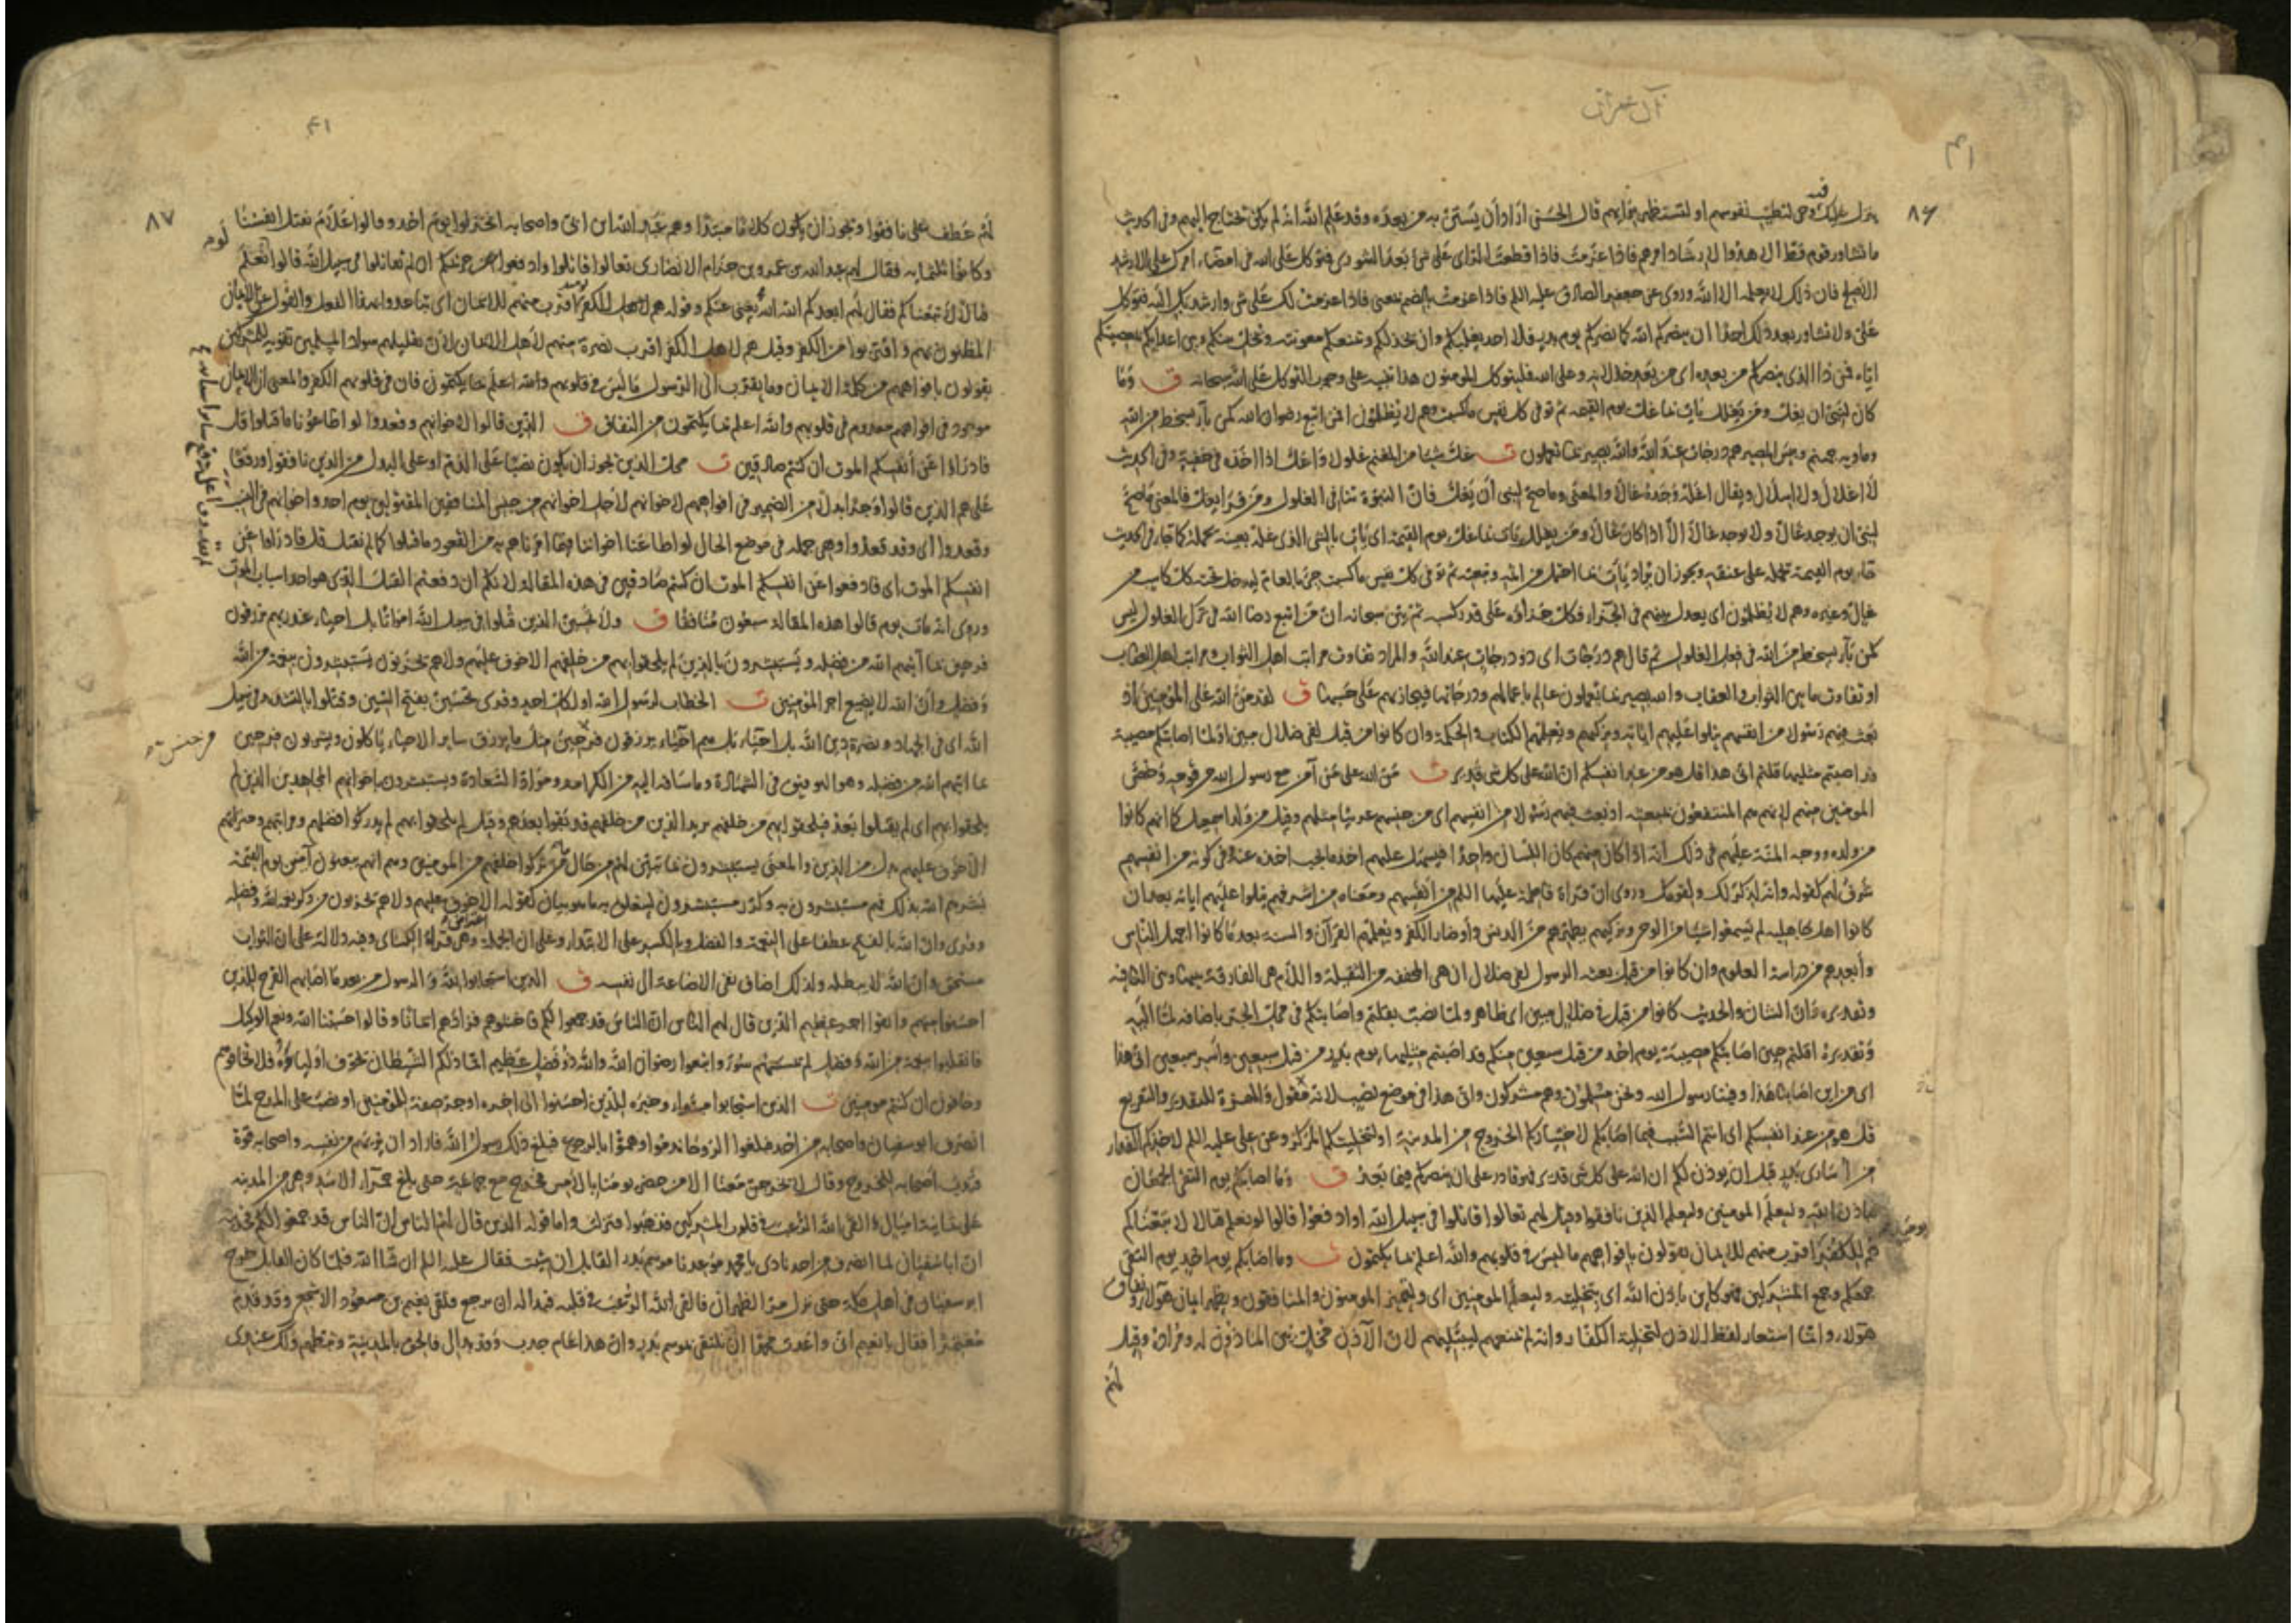 آل عمران
٤١
٨٦
فيه
ينزل عليك وحي لتطيب نفوسهم او لتستظهر برايهم قال الحسن اراد أن يستن به من بعده وقد علم الله انه لم يكن يحتاج اليهم وفى الحديث
ما تشاور قوم قط الا هدوا لارشاد امرهم فاذا عزمت فاذا قطعت الراى على شئ بعد الشورى فتوكل على الله فى امضاء امرك على الارشد
الأصلح فان ذلك لا يعلمه الا الله وروى عن جعفر الصادق عليه السلم فاذا عزمت بالضم بمعنى فاذا عزمت لك على شئ وارشدتك اليه فتوكل
على ولا تشاور بعد ذلك احدا ان ينصركم الله كما نصركم يوم بدر فلا احد يغلبكم وان يخذلكم ويمنعكم معونته ويخل بينكم وبين اعدايكم بمعصيتكم
اياه فمن ذا الذى ينصركم من بعده اى من بعد خذلانه وعلى الله فليتوكل المومنون هذا تنبيه على وجوب التوكل على الله سبحانه ق وما
كان لنبى ان يغل ومن يغلل يأت بما غل يوم القيمة ثم توفى كل نفس ما كسبت وهم لا يظلمون افمن اتبع رضوان الله كمن باء بسخط من الله
وماويه جهنم وبئس المصير هم درجات عند الله والله بصير بما يعملون ت غل شيئا من المغنم غلولا واغل اذا اخذه فى خفية وفى الحديث
لا اغلال ولا اسلال ويقال اغله وجده غالا والمعنى وما صح لنبى أن يغل فان النبوة تنافى الغلول ومن قرا يغل فالمعنى ما صح
لنبى ان يوجد غالا ولا يوجد غالا الا اذا كان غالا ومن يغلل يات بما غل يوم القيمة اى يأت بالشئ الذى غله بعينه يحمله كما جاء فى الحديث
جاء يوم القيمة يحمله على عنقه ويجوز ان يراد يأت بما احتمل من اثمه وتبعته ثم توفى كل نفس ما كسبت جئ بالعام ليدخل تحته كل كاسب من
غال وغيره وهم لا يظلمون اى يعدل بينهم فى الجزاء فكل جزاؤه على قدر كسبه ثم بين سبحانه ان من اتبع رضا الله فى ترك الغلول ليس
كمن باء بسخط من الله فى فعل الغلول ثم قال هم درجات اى ذوو درجات عند الله والمراد تفاوت مراتب اهل الثواب ومراتب اهل العقاب
او تفاوت ما بين الثواب والعقاب والله بصير بما يعملون عالم باعمالهم ودرجاتها فيجازيهم على حسبها ق لقد من الله على المؤمنين اذ
بعث فيهم رسولا من انفسهم يتلوا عليهم اياته ويزكيهم ويعلمهم الكتاب والحكمة وان كانوا من قبل لفى ضلال مبين اولما اصابتكم مصيبة
قد اصبتم مثليها قلتم انى هذا قل هو من عند انفسكم ان الله على كل شئ قدير ت من الله على من آمن مع رسول الله من قومه وخص
المومنين منهم لانهم هم المنتفعون بمبعثه اذ بعث فيهم رسولا من انفسهم اى من جنسهم عربيا مثلهم وقيل من ولد اسمعيل كما انهم كانوا
من ولده ووجه المنة عليهم فى ذلك انه اذا كان منهم كان اللسان واحدا فيسهل عليهم اخذ ما يجب اخذه عنه وفى كونه من انفسهم
شرف لهم كقوله وانه لذكر لك ولقومك وروى ان قراءة فاطمة عليها السلم من أنفسهم ومعناه من اشرفهم يتلوا عليهم اياته بعد ان
كانوا اهل جاهلية لم يسمعوا شيئا من الوحى ويزكيهم يطهرهم من الدنس وأوضار الكفر ويعلمهم القرآن والسنة بعد ما كانوا اجهل الناس
وأبعدهم من دراسة العلوم وان كانوا من قبل بعثه الرسول لفى ضلال ان هى المخففة من الثقيلة واللام هى الفارقة بينها وبين النافية
وتقديره وان الشان والحديث كانوا من قبل فى ضلال مبين اى ظاهر ولما نصب بقلتم واصابتكم فى محل الجر باضافه لما اليه
وتقديره اقلتم حين اصابتكم مصيبة يوم احد من قتل سبعين منكم قد اصبتم مثليها يوم بدر من قتل سبعين وأسر سبعين انى هذا
اى من اين اصابنا هذا وفينا رسول الله ونحن مسلمون وهم مشركون وانى هذا فى موضع نصب لانه مقول والهمزة للتقرير والتقريع
قل هو من عند انفسكم اى انتم السبب فيما اصابكم لاختياركم الخروج من المدينة او لتخليتكم المركز وعن على عليه السلم لاخذكم الفداء
من اسارى بدر قبل ان يوذن لكم ان الله على كل شئ قدير فهو قادر على ان ينصركم فيما بعد ق وما اصابكم يوم التقى الجمعان
فباذن الله وليعلم المومنين وليعلم الذين نافقوا وقيل لهم تعالوا قاتلوا فى سبيل الله او ادفعوا قالوا لو نعلم قتالا لاتبعناكم
هم للكفر اقرب منهم للايمان يقولون بافواههم ما ليس فى قلوبهم والله اعلم بما يكتمون ت وما اصابكم يوم احد يوم التقى
يومئذ
جمعكم وجمع المشركين فهو كاين باذن الله اى بتخليته وليعلم المومنين اى وليتميز المومنون والمنافقون ويظهر ايمان هؤلاء ونفاق
هؤلاء وانما استعار لفظ الاذن لتخليته الكفار وانه لم يمنعهم ليبتليهم لان الآذن مخل بين الماذون له ومراده وقيل
لهم
٤١
٨٧
لهم عطف على نافقوا ويجوز ان يكون كلاما مبتدأ وهم عبد الله ابن ابى واصحابه انخزلوا يوم احد وقالوا علام نقتل انفسنا
وكانوا ثلثمايه فقال لهم عبد الله بن عمرو بن حزام الانصارى تعالوا قاتلوا وادفعوا عن حريمكم ان لم تقاتلوا فى سبيل الله قالوا لو نعلم
قتالا لاتبعناكم فقال لهم ابعدكم الله الله يغنى عنكم وقوله هم لاهل الكفر اقرب منهم للايمان اى تباعدوا بهذا الفعل والقول عن الايمان
المظنون بهم واقتربوا من الكفر وقيل هم لاهل الكفر اقرب نصرة منهم لاهل الايمان لان تقليلهم سواد المسلمين تقوية للمشركين
يقولون بافواههم من كلمة الايمان وما يقترب الى الرسول ما ليس فى قلوبهم والله اعلم بما يكتمون فان فى قلوبهم الكفر والمعنى ان الايمان
موجود فى افواههم معدوم فى قلوبهم والله اعلم بما يكتمون من النفاق ق الذين قالوا لاخوانهم وقعدوا لو اطاعونا ما قتلوا قل
فادرؤا عن أنفسكم الموت ان كنتم صادقين ت محل الذين يجوز ان يكون نصبا على الذم او على البدل من الذين نافقوا ورفعا
على هم الذين قالوا وجرا بدلا من الضمير فى افواههم لاخوانهم لاجل اخوانهم من جنس المنافقين المقتولين يوم احد واخوانهم فى النسب
وقعدوا اى وقد قعدوا وهى جملة فى موضع الحال لو اطاعنا اخواننا فيما امرناهم به من القعود ما قتلوا كما لم نقتل قل فادرؤا عن
انفسكم الموت اى فادفعوا عن انفسكم الموت ان كنتم صادقين فى هذه المقالة لانكم ان دفعتم القتل الذى هو احد اسباب الموت
وروى انه مات يوم قالوا هذه المقالة سبعون منافقا ق ولا تحسبن الذين قتلوا فى سبيل الله امواتا بل احياء عند ربهم يرزقون
فرحين بما آتيهم الله من فضله ويستبشرون بالذين لم يلحقوا بهم من خلفهم الا خوف عليهم ولا هم يحزنون يستبشرون بنعمة من الله
وفضل وان الله لا يضيع اجر المؤمنين ت الخطاب لرسول الله او لكل احد وقرئ تحسبن بفتح السين وقتلوا بالتشديد فى سبيل
الله اى فى الجهاد ونصرة دين الله بل احياء بل هم احياء يرزقون مثل ما يرزق ساير الاحياء ياكلون ويشربون فرحين
بما اتيهم الله من فضله وهو التوفيق فى الشهادة وما ساقه اليهم من الكرامة ومزاة السعادة ويستبشرون باخوانهم المجاهدين الذين لم
يلحقوا بهم اى لم يقتلوا بعد فيلحقوا بهم من خلفهم يريد الذين من خلفهم قد بقوا بعدهم وقيل لم يلحقوا بهم لم يدركوا فضلهم ومراتبهم ومنزلتهم
الا خوف عليهم بدل من الذين والمعنى يستبشرون بما تبين لهم من حال من تركوا خلفهم من المومنين وهم انهم يبعثون آمنين يوم القيمة
بشرهم الله بذلك فهم مستبشرون به وكرر يستبشرون ليتعلق به ما هو بيان لقوله الا خوف عليهم ولا هم يحزنون من ذكر نعمة الله وفضله
وقرئ وان الله بالفتح عطفا على النعمة والفضل وبالكسر على الابتداء وعلى ان الجملة اعتراض وهى قراءة الكسائى وفيه دلالة على ان الثواب
مستحق وان الله لا يبطله ولذلك اضاف نفى الاضاعة الى نفسه ق الذين استجابوا لله والرسول من بعد ما اصابهم القرح للذين
احسنوا منهم واتقوا اجر عظيم الذين قال لهم الناس ان الناس قد جمعوا لكم فاخشوهم فزادهم ايمانا وقالوا حسبنا الله ونعم الوكيل
فانقلبوا بنعمة من الله وفضل لم يمسسهم سوء واتبعوا رضوان الله والله ذو فضل عظيم انما ذلكم الشيطان يخوف اولياءه فلا تخافوهم
وخافون ان كنتم مومنين ت الذين استجابوا مبتداء وخبره للذين احسنوا الى اخره او جر صفة للمؤمنين او نصب على المدح لما
انصرف ابو سفيان واصحابه من احد فبلغوا الروحا ندموا وهموا بالرجوع فبلغ ذلك رسول الله فاراد ان يرهبهم من نفسه واصحابه قوة
فندب اصحابه للخروج وقال لا يخرجن معنا الا من حضر يومنا بالامس فخرج مع جماعة حتى بلغ حمراء الاسد وهى من المدينة
على ثمانية اميال والقى الله الرعب فى قلوب المشركين فذهبوا فنزلت واما قوله الذين قال لهم الناس ان الناس قد جمعوا لكم
ان ابا سفيان لما انصرف من احد نادى يا محمد موعدنا موسم بدر القابل ان شئت فقال عليه السلم ان شا الله فلما كان القابل خرج
ابو سفيان فى اهل مكة حتى نزل مر الظهران فالقى الله الرعب فى قلبه فبدا له ان يرجع فلقى نعيم بن مسعود الاشجعى وقد قدم
معتمرا فقال يا نعيم انى واعدت محمدا ان نلتقى بموسم بدر وان هذا عام جدب وقد بدا لى فالحق بالمدينة وثبطهم ولك عندى